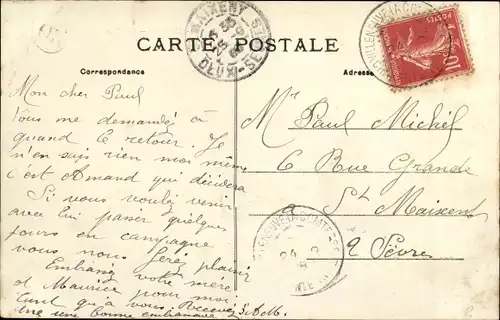 CARTE POSTALE
Correspondance
Adresse
Mon cher Paul
Vous me demandez à
quand le retour. Je
n'en sais rien moi même
c'est Armand qui décidera
Si vous voulez venir
avec lui passer quelques
jours en campagne
vous nous ferez plaisir
Embrassez votre mère
et Maurice pour moi
tant qu'à vous. Recevez
une bonne embrassade
Mr Paul Michel
6 Rue Grande
a St Maixent
2 Sèvres
POSTES
10